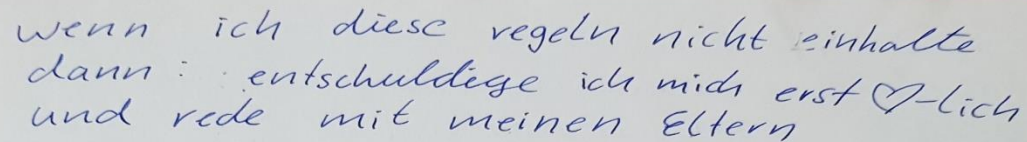 wenn ich diese regeln nicht einhalte
dann: entschuldiege ich mich erst ♡-lich
und rede mit meinen Eltern